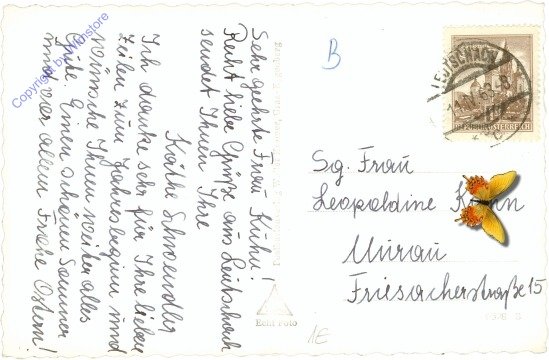 Sehr geehrte Frau Kuhn!
Recht liebe Grüße aus Leutschach
sendet Ihnen Ihre
Käthe
Ich danke sehr für Ihre lieben
Zeilen zum Jahresbeginn und
wünsche Ihnen weiter alles
Gute. Einen schönen Sommer
und vor allem Frohe Ostern!
B
LEUTSCHACH
REPUBLIK ÖSTERREICH
Sg. Frau
Leopoldine
Murau
Friesacherstraße 15
Echt Foto
1E
Copyright by Wkinstore